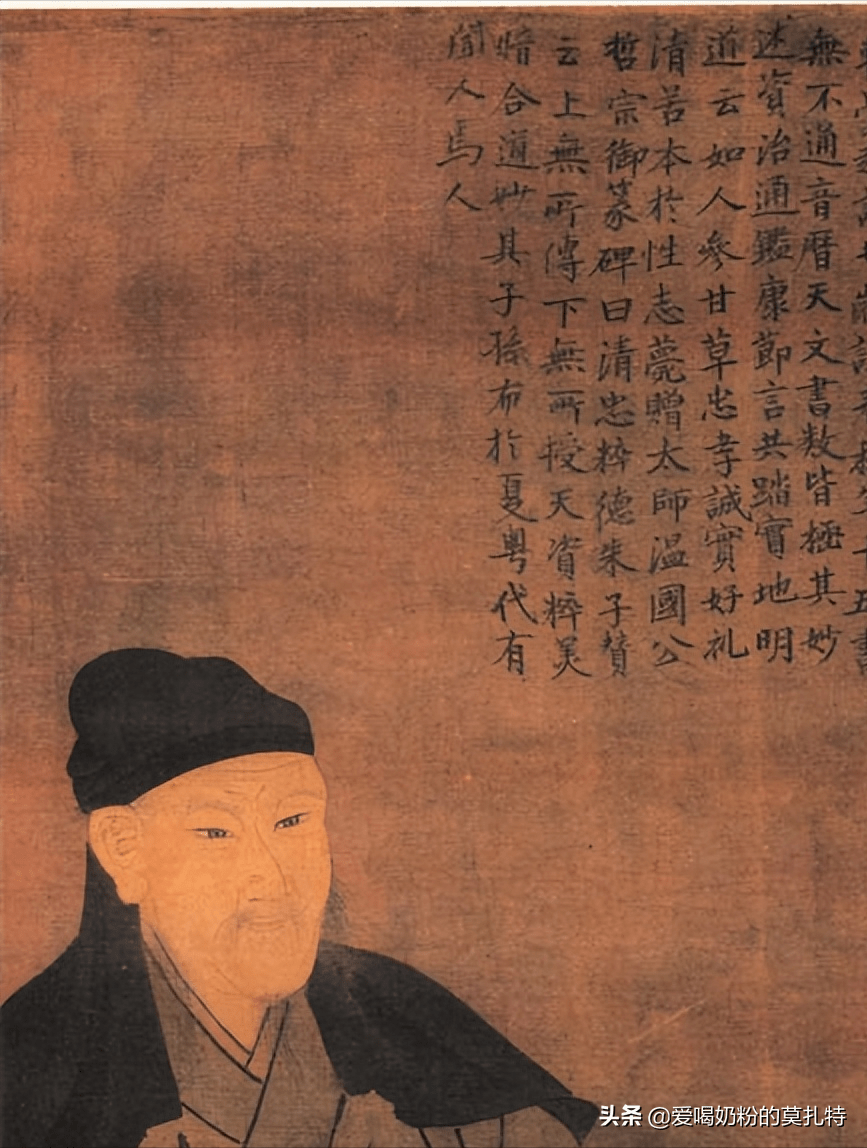 無不通音曆天文書数皆極其妙
述資治通鑑康節言共踏實地明
道云如人參甘草忠孝誠實好礼
清苦本於性志薨贈太師温國公
哲宗御篆碑曰清忠粹德朱子贊
云上無所傳下無所授天資粹美
暗合道妙其子孫布於夏粤代有
聞人馬人
头条 @爱喝奶粉的莫扎特